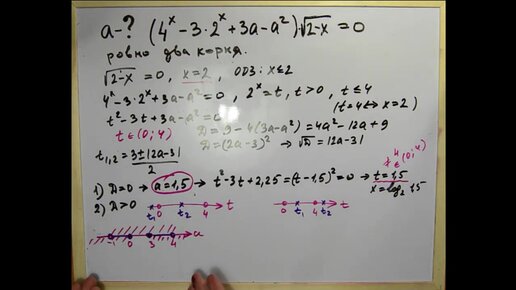 a-? (4ˣ-3·2ˣ+3a-a²)·√2-x = 0
ровно два корня.
√2-x = 0, x=2, ОДЗ: x≤2
4ˣ-3·2ˣ+3a-a²=0, 2ˣ=t, t>0, t≤4
(t=4↔x=2)
t²-3t+3a-a²=0
t∈(0;4)
D=9-4(3a-a²)=4a²-12a+9
D=(2a-3)² → √D=|2a-3|
t₁,₂ = 3±|2a-3| / 2
1) D=0 → a=1,5 → t²-3t+2,25=(t-1,5)²=0 → t=1,5 ∈(0;4)
x=log₂1,5
2) D>0
0 4 t
t₁ t₂
0 4 t
t₁ t₂
-1 0 3 4 a